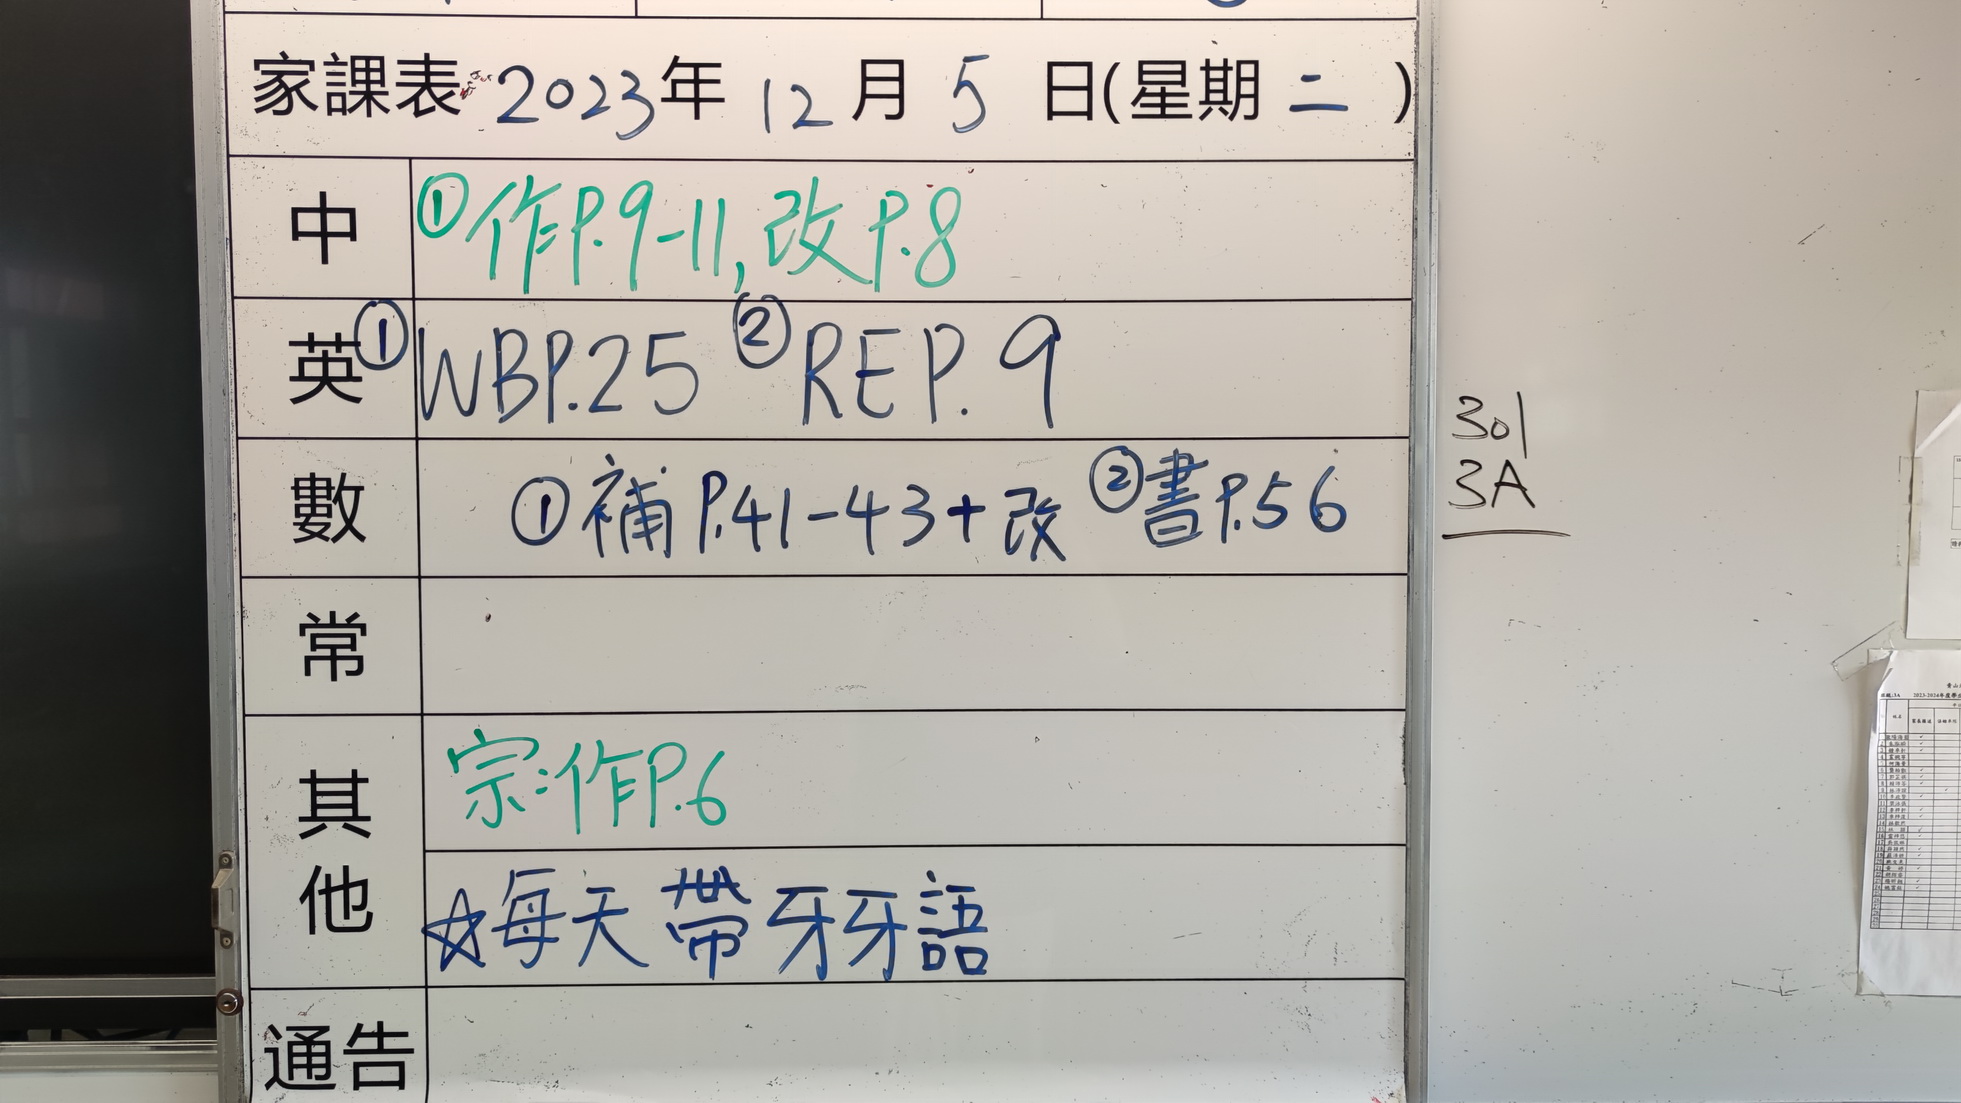 家課表 2023年 12月 5 日(星期 二 )
中 ①作P.9-11, 改P.8
英 ①WBP.25 ②REP. 9
數 ①補P.41-43+改 ②書P.56
常
其他
宗:作P.6
☆每天帶牙牙語
通告
301
3A